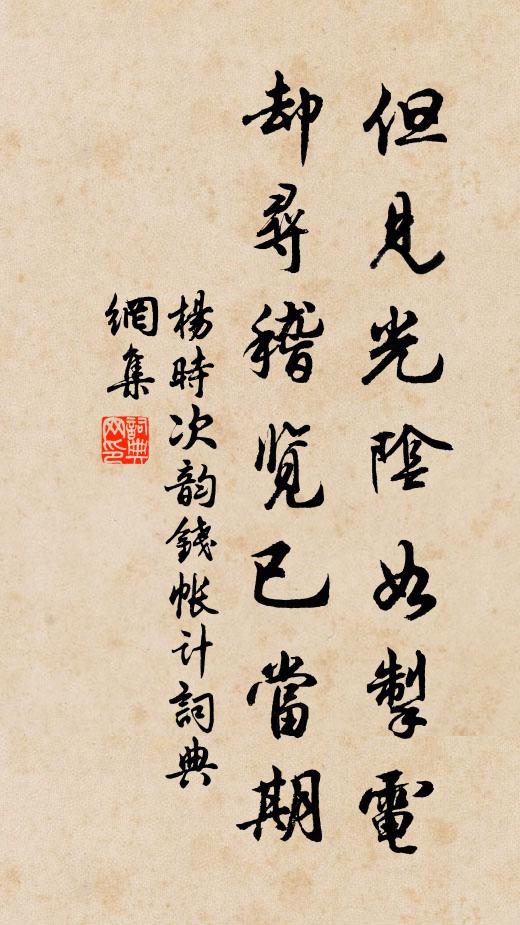 但見光陰如掣電
却尋稽覽已當期
楊時次韵錢帐计詞典
網集
詞典網印